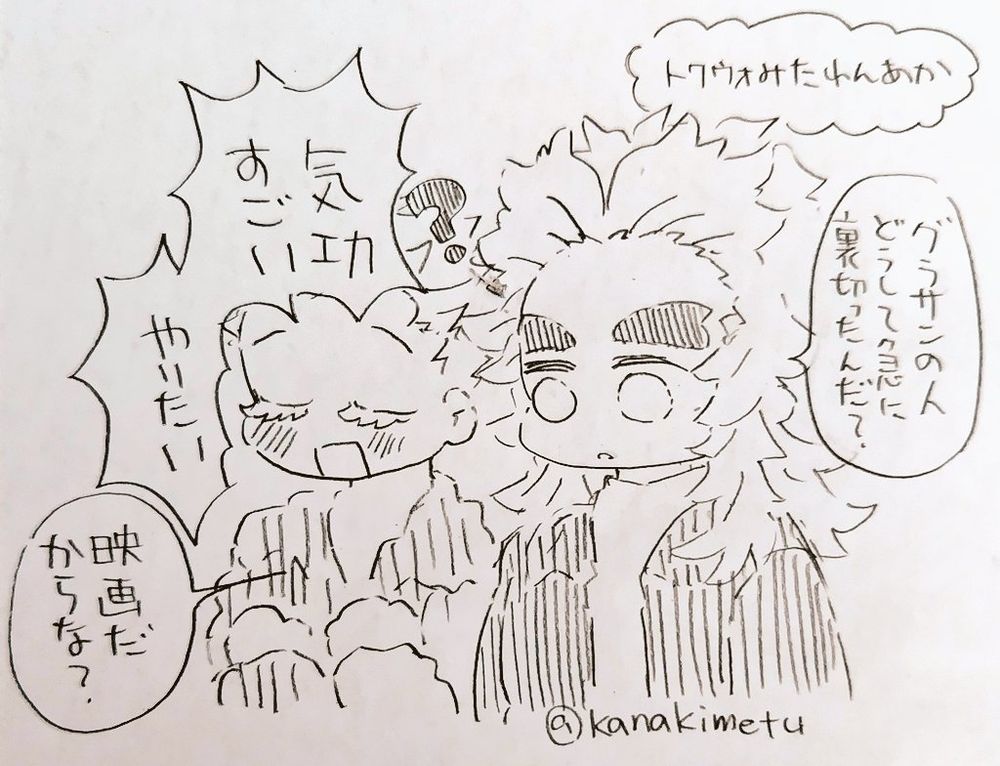 トワウォみたれんあか
グラサンの人
どうして急に
裏切ったんだ?
気功
すごい
?
やりたい
映画だ
からな?
@kanakimetu